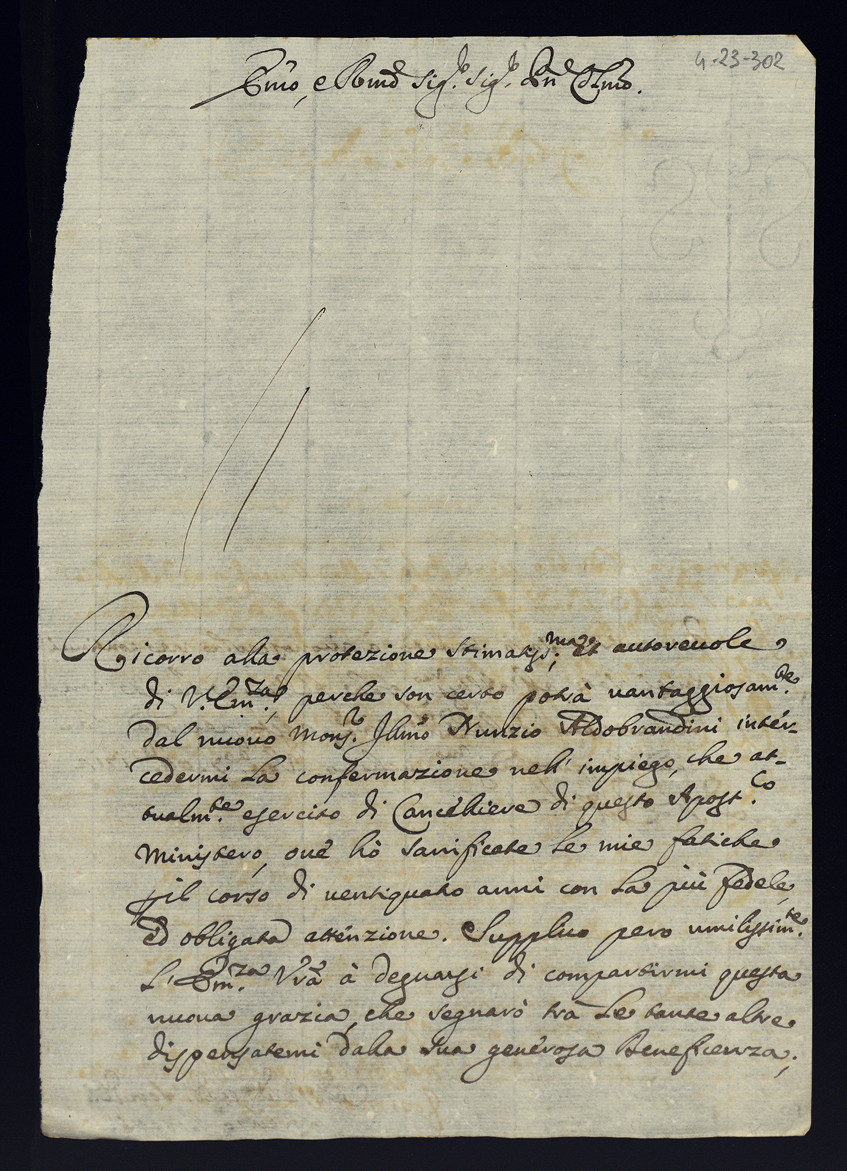 4-23-302
Emo, e Rmo Sigr. Sigr. Pne Colmo.
Ricorro alla protezione stimatiss:ma et autorevole
di V. Em:za, perche son certo potrà vantaggiosamte.
dal nuovo Monsr. Illmo Nunzio Aldobrandini inter-
cedermi la confermazione nell' impiego, che at-
tualmte. esercito di Cancelliere di questo Apost.co
Ministero, oue hò sacrificate le mie fatiche
p il corso di uentiquatro anni con la più fedele,
ed obligata attenzione. Supplico pero umilissimte.
L' Em.za Vrã à degnarsi di compartirmi questa
nuoua grazia, che segnarò tra le tante altre
dispensatemi dalla sua generosa Beneficenza;